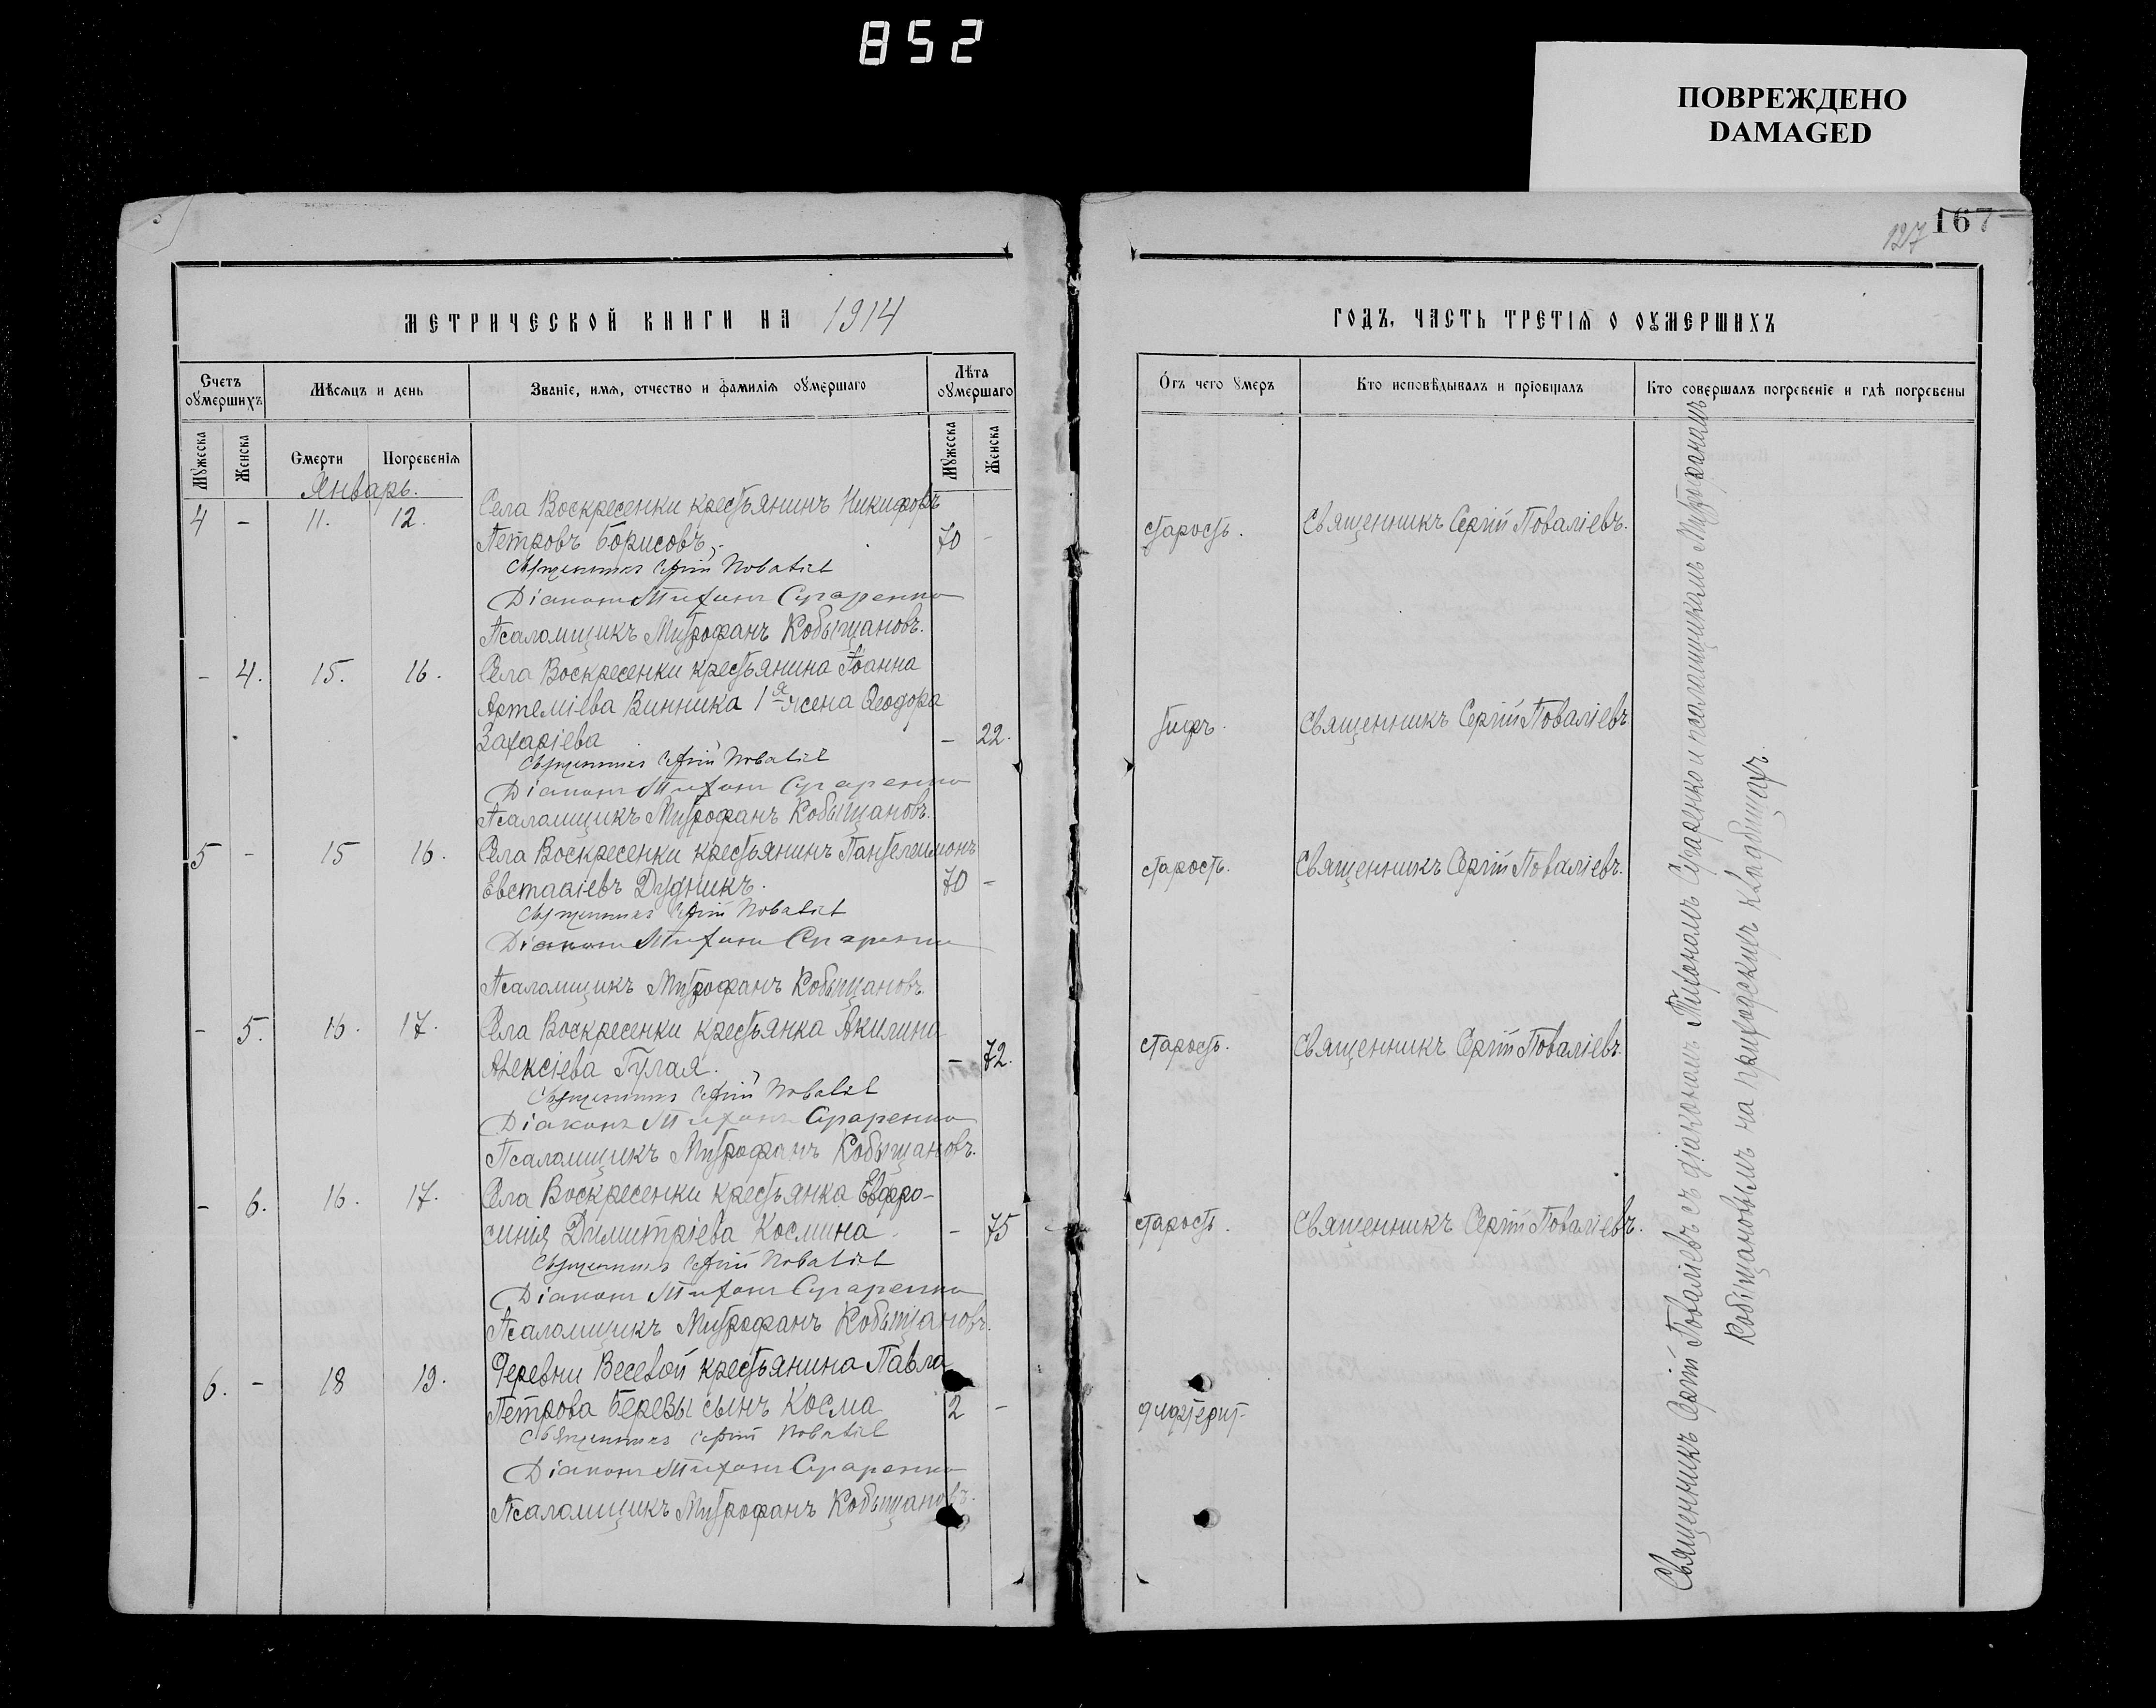 852
ПОВРЕЖДЕНО
DAMAGED
167
127
МЕТРИЧЕСКОЙ КНИГИ НА 1914
ГОДЪ, ЧАСТЬ ТРЕТІѦ О ОУМЕРШИХЪ
Счетъ оумершихъ
Мѣсѧцъ и день
Званіе, имѧ, отчество и фамиліѧ оумершаго
Лѣта оумершаго
Отъ чего умеръ
Кто исповѣдывалъ и пріобщалъ
Кто совершалъ погребеніе и гдѣ погребены
Мужеска
Женска
Смерти
Погребеніѧ
Мужеска
Женска
Январь.
4 - 11. 12. Села Воскресенки крестьянинъ Никифоръ
Петровъ Борисовъ. 70 - старость. Священникъ Сергій Поваліевъ.
Священникъ Сергій Поваліевъ
Діаконъ Тихонъ
Псаломщикъ Митрофанъ Кобыщановъ.
- 4. 15. 16. Села Воскресенки крестьянина Іоанна
Артеміева Винника 1я жена Ѳеодора
Захаріева - 22. тифъ. Священникъ Сергій Поваліевъ
Священникъ Сергій Поваліевъ
Діаконъ Тихонъ
Псаломщикъ Митрофанъ Кобыщановъ.
5 - 15 16. Села Воскресенки крестьянинъ Пантелеимонъ
Евстаѳіевъ Дудникъ. 70 - старость. Священникъ Сергій Поваліевъ.
Священникъ Сергій Поваліевъ
Діаконъ Тихонъ
Псаломщикъ Митрофанъ Кобыщановъ.
- 5. 16. 17. Села Воскресенки крестьянка Акилина
Алексіева Гулая. - 72. старость. Священникъ Сергій Поваліевъ.
Священникъ Сергій Поваліевъ
Діаконъ Тихонъ
Псаломщикъ Митрофанъ Кобыщановъ.
- 6. 16. 17. Села Воскресенки крестьянка Евфро-
синія Димитріева Космина - 75 старость. Священникъ Сергій Поваліевъ.
Священникъ Сергій Поваліевъ
Діаконъ Тихонъ
Псаломщикъ Митрофанъ Кобыщановъ.
6. - 18 19. Деревни Веселой крестьянина Павла
Петрова Березы сынъ Косма 2 - дифтерит
Священникъ Сергій Поваліевъ
Діаконъ Тихонъ
Псаломщикъ Митрофанъ Кобыщановъ.
Священникъ Сергій Поваліевъ съ діакономъ Тихономъ и псаломщикомъ Митрофаномъ
Кобыщановымъ на приходскихъ кладбищахъ.